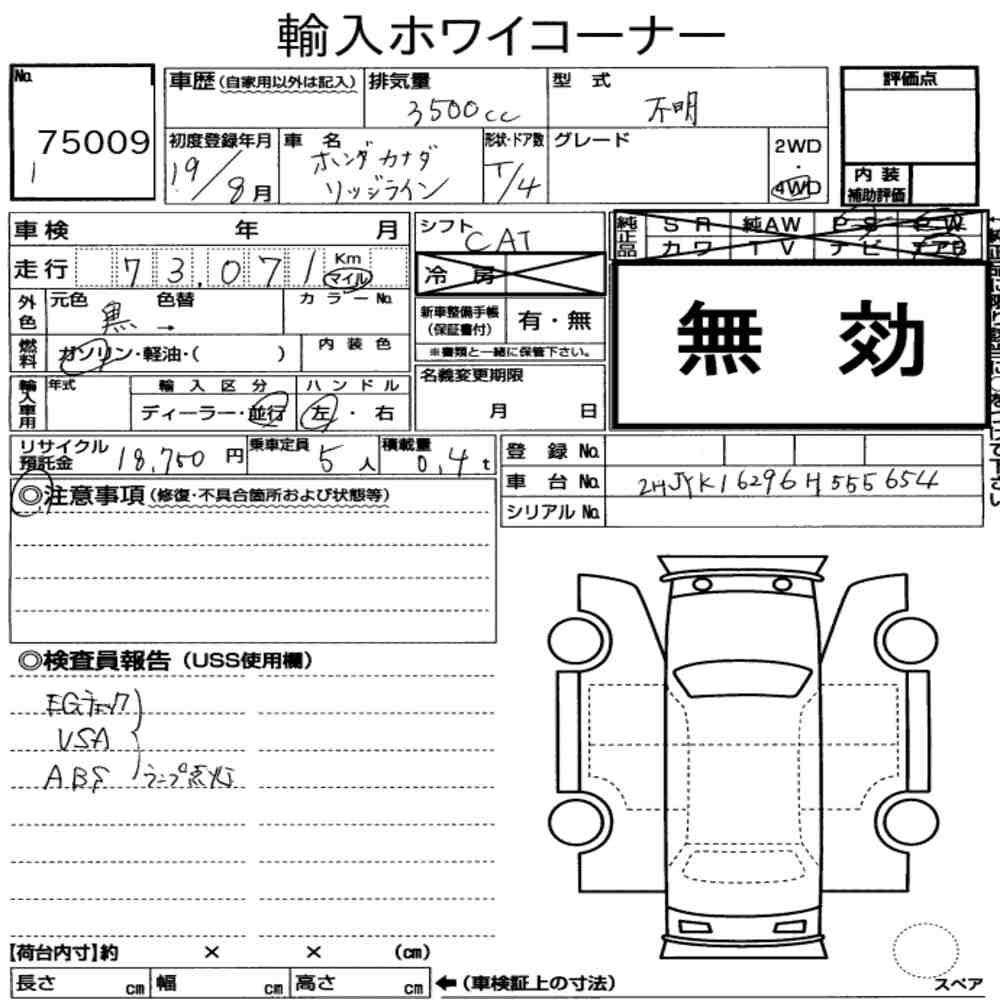 輸入ホワイコーナー
No.
75009
1
車歴(自家用以外は記入)
排気量
3500cc
型 式
不明
評価点
初度登録年月
19/8月
車 名
ホンダカナダ
リッジライン
形状・ドア数
T/4
グレード
2WD
・
4WD
内 装
補助評価
車検 年 月
走行 73,071 Km
マイル
シフト
CAT
冷 房
純正品
S R 純AW P S P W
カワ T V ナビ エアB
外色
元色 色替
黒 →
カラーNo.
新車整備手帳
(保証書付)
有・無
※書類と一緒に保管下さい。
無 効
燃料
ガソリン・軽油・( )
内 装 色
輸入車用
年式
輸 入 区 分
ディーラー・並行
ハ ン ド ル
左 ・ 右
名義変更期限
月 日
リサイクル
預託金
18,750 円
乗車定員
5人
積載量
0.4t
登 録 No.
車 台 No. 2HJYK16296H555654
シリアル No.
◎注意事項(修復・不具合箇所および状態等)
◎検査員報告(USS使用欄)
EGチェック
VSA
ABS
ランプ点灯
【荷台内寸】約 × × (cm)
長さ cm 幅 cm 高さ cm ←(車検証上の寸法)
スペア